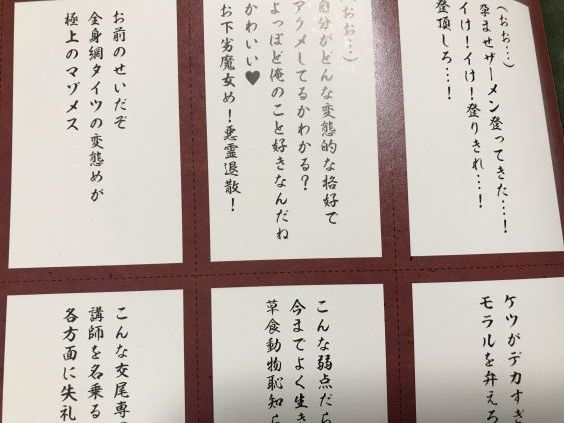 （おお…）
孕ませザーメン登ってきた…！
イけ！イけ！登りきれ…！
登頂しろ…！
（おお…）
自分がどんな変態的な格好で
アクメしてるかわかる？
よっぽど俺のこと好きなんだね
かわいい♥
お下劣魔女め！悪霊退散！
お前のせいだぞ
全身網タイツの変態めが
極上のマゾメス
ケツがデカすぎ
モラルを弁えろ
こんな弱点だら
今までよく生き
草食動物恥知ら
こんな交尾専
講師を名乗る
各方面に失礼